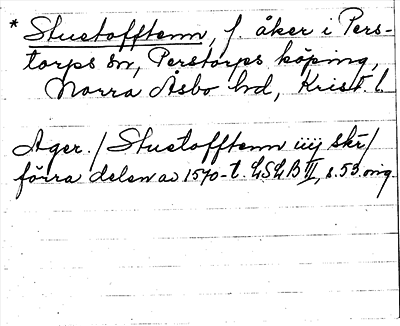 * Stustofftenn, f. åker i Pers-
torps sn, Perstorps köping,
Norra Åsbo hd, Krist. l.
Ager. / Stustofftenn iiij skr/
förra delen av 1570-t. LSLB III, s. 53. orig.